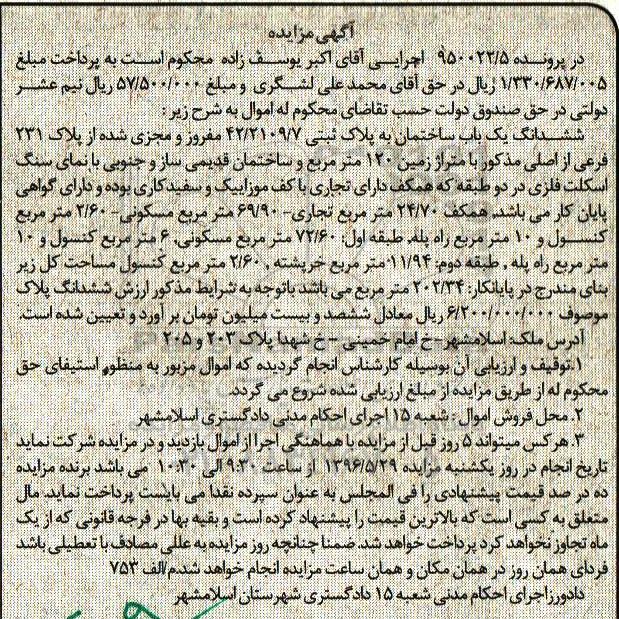 آگهی مزایده
در پرونده ۹۵۰۰۲۲/۵ اجرایی آقای اکبر یوسف زاده محکوم است به پرداخت مبلغ
۱/۳۳۰/۶۸۷/۰۰۵ ریال در حق آقای محمد علی لشگری و مبلغ ۵۷/۵۰۰/۰۰۰ ریال نیم عشر
دولتی در حق صندوق دولت حسب تقاضای محکوم له اموال به شرح زیر :
ششدانگ یک باب ساختمان به پلاک ثبتی ۴۲/۲۱۰۹/۷ مفروز و مجزی شده از پلاک ۲۳۱
فرعی از اصلی مذکور با متراژ زمین ۱۲۰ متر مربع و ساختمان قدیمی ساز و جنوبی با نمای سنگ
اسکلت فلزی در دو طبقه که همکف دارای تجاری با کف موزاییک و سفیدکاری بوده و دارای گواهی
پایان کار می باشد. همکف ۲۴/۷۰ متر مربع تجاری- ۶۹/۹۰ متر مربع مسکونی- ۲/۶۰ متر مربع
کنسول و ۱۰ متر مربع راه پله. طبقه اول: ۷۲/۶۰ متر مربع مسکونی. ۶ متر مربع کنسول و ۱۰
متر مربع راه پله . طبقه دوم: ۱۱/۹۴ متر مربع خرپشته . ۲/۶۰ متر مربع کنسول مساحت کل زیر
بنای مندرج در پایانکار: ۲۰۲/۳۴ متر مربع می باشد باتوجه به شرایط مذکور ارزش ششدانگ پلاک
موصوف ۶/۲۰۰/۰۰۰/۰۰۰ ریال معادل ششصد و بیست میلیون تومان بر آورد و تعیین شده است.
آدرس ملک: اسلامشهر-خ امام خمینی – خ شهدا پلاک ۲۰۳ و ۲۰۵
۱.توقیف و ارزیابی آن بوسیله کارشناس انجام گردیده که اموال مزبور به منظور استیفای حق
محکوم له از طریق مزایده از مبلغ ارزیابی شده شروع می گردد.
۲. محل فروش اموال : شعبه ۱۵ اجرای احکام مدنی دادگستری اسلامشهر
۳.هرکس میتواند ۵ روز قبل از مزایده با هماهنگی اجرا از اموال بازدید و در مزایده شرکت نماید
تاریخ انجام در روز یکشنبه مزایده ۱۳۹۶/۵/۲۹ از ساعت ۹:۳۰ الی ۱۰:۳۰ می باشد برنده مزایده
ده در صد قیمت پیشنهادی را فی المجلس به عنوان سپرده نقدا می بایست پرداخت نماید. مال
متعلق به کسی است که بالاترین قیمت را پیشنهاد کرده است و بقیه بها در فرجه قانونی که از یک
ماه تجاوز نخواهد کرد پرداخت خواهد شد. ضمنا چنانچه روز مزایده به عللی مصادف با تعطیلی باشد
فردای همان روز در همان مکان و همان ساعت مزایده انجام خواهد شد.م/الف ۷۵۳
دادورزاجرای احکام مدنی شعبه ۱۵ دادگستری شهرستان اسلامشهر